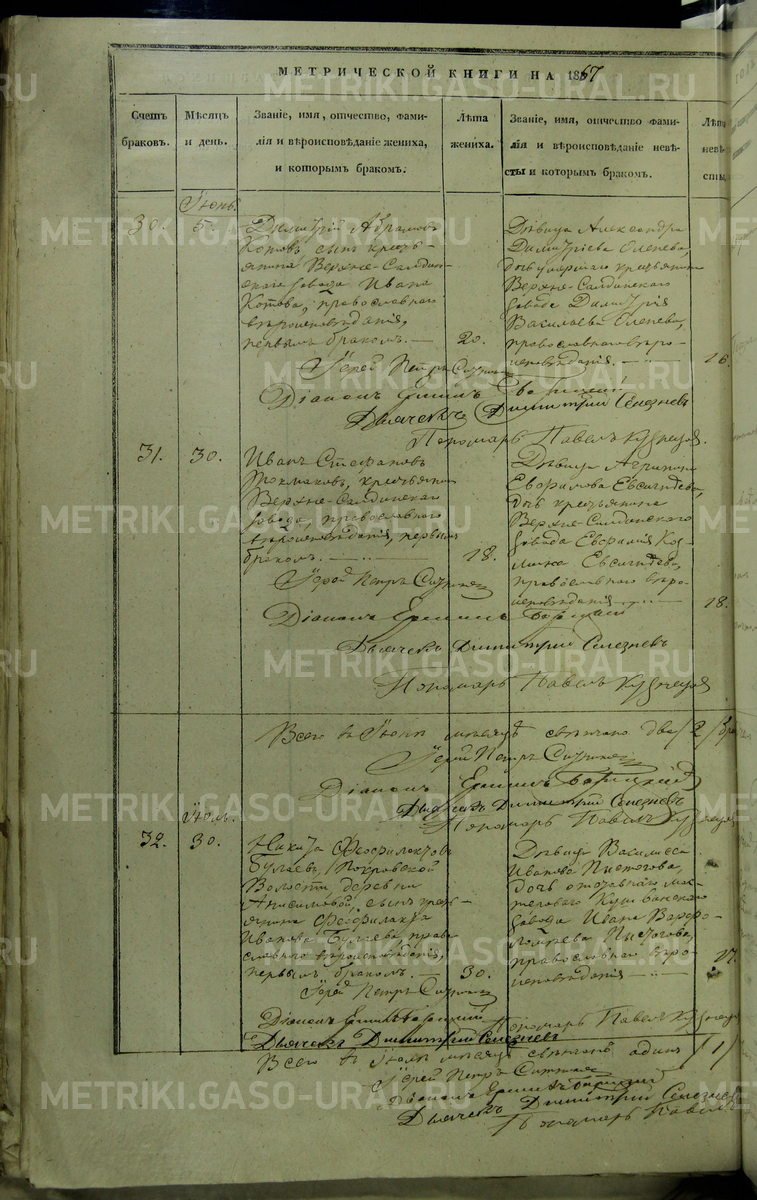 МЕТРИЧЕСКОЙ КНИГИ НА 1867
Счетъ браковъ.
Мѣсяцъ и день.
Званіе, имя, отчество, фами-
лія и вѣроисповѣданіе жениха,
и которымъ бракомъ.
Лѣта жениха.
Званіе, имя, отчество фами-
лія и вѣроисповѣданіе невѣ-
сты и которымъ бракомъ.
Лѣта невѣ-
сты
Іюнь
30.
5.
Димитрій
Котовъ, сынъ кресть-
янина Верхне-Салдин-
скаго завода Ивана
Котова, православнаго
вѣроисповѣданія,
первымъ бракомъ.
20.
Дѣвица Александра
Димитріева Оленева,
дочь умершаго крестьянина
Верхне-Салдинскаго
завода Димитрія
Васильева Оленева,
православнаго вѣро-
исповѣданія.
16
Іерей Петръ
Діаконъ
Дьячекъ Димитрій Селезневъ
Пономарь Павелъ Кузнецов.
31.
30.
Иванъ Стефановъ
Токмаковъ, крестьянинъ
Верхне-Салдинскаго
завода, православнаго
вѣроисповѣданія, первымъ
бракомъ.
18.
Дѣвица Агрипина
дочь крестьянина
Верхне-Салдинскаго
завода
православнаго вѣро-
исповѣданія
18.
Іерей Петръ
Діаконъ
Дьячекъ Димитрій Селезневъ
Пономарь Павелъ Кузнецов
Всего въ Іюнѣ мѣсяцѣ свѣнчано два /2/ бра
Іерей Петръ
Діаконъ
Дьячекъ Димитрій Селезневъ
Пономарь Павелъ Кузнецов
Іюль.
32.
30.
Никита Феофилактовъ
Булаевъ, Покровской
Волости, деревни
Анисимовой, сынъ кресть-
янина Феофилакта
Иванова Булаева, право-
славнаго вѣроисповѣданія,
первымъ бракомъ.
30.
Дѣвица Василиса
Иванова
дочь отставнаго мас-
тероваго Кушвинскаго
завода Ивана Варфо-
ломѣева
православнаго вѣро-
исповѣданія
17.
Іерей Петръ
Діаконъ
Пономарь Павелъ Кузнецов
Дьячекъ Димитрій Селезневъ
Всего въ Іюлѣ мѣсяцѣ свѣнчанъ одинъ /1/
Іерей Петръ
Діаконъ
Дьячекъ Димитрій Селезнев
Пономарь Павел
METRIKI.GASO-URAL.RU